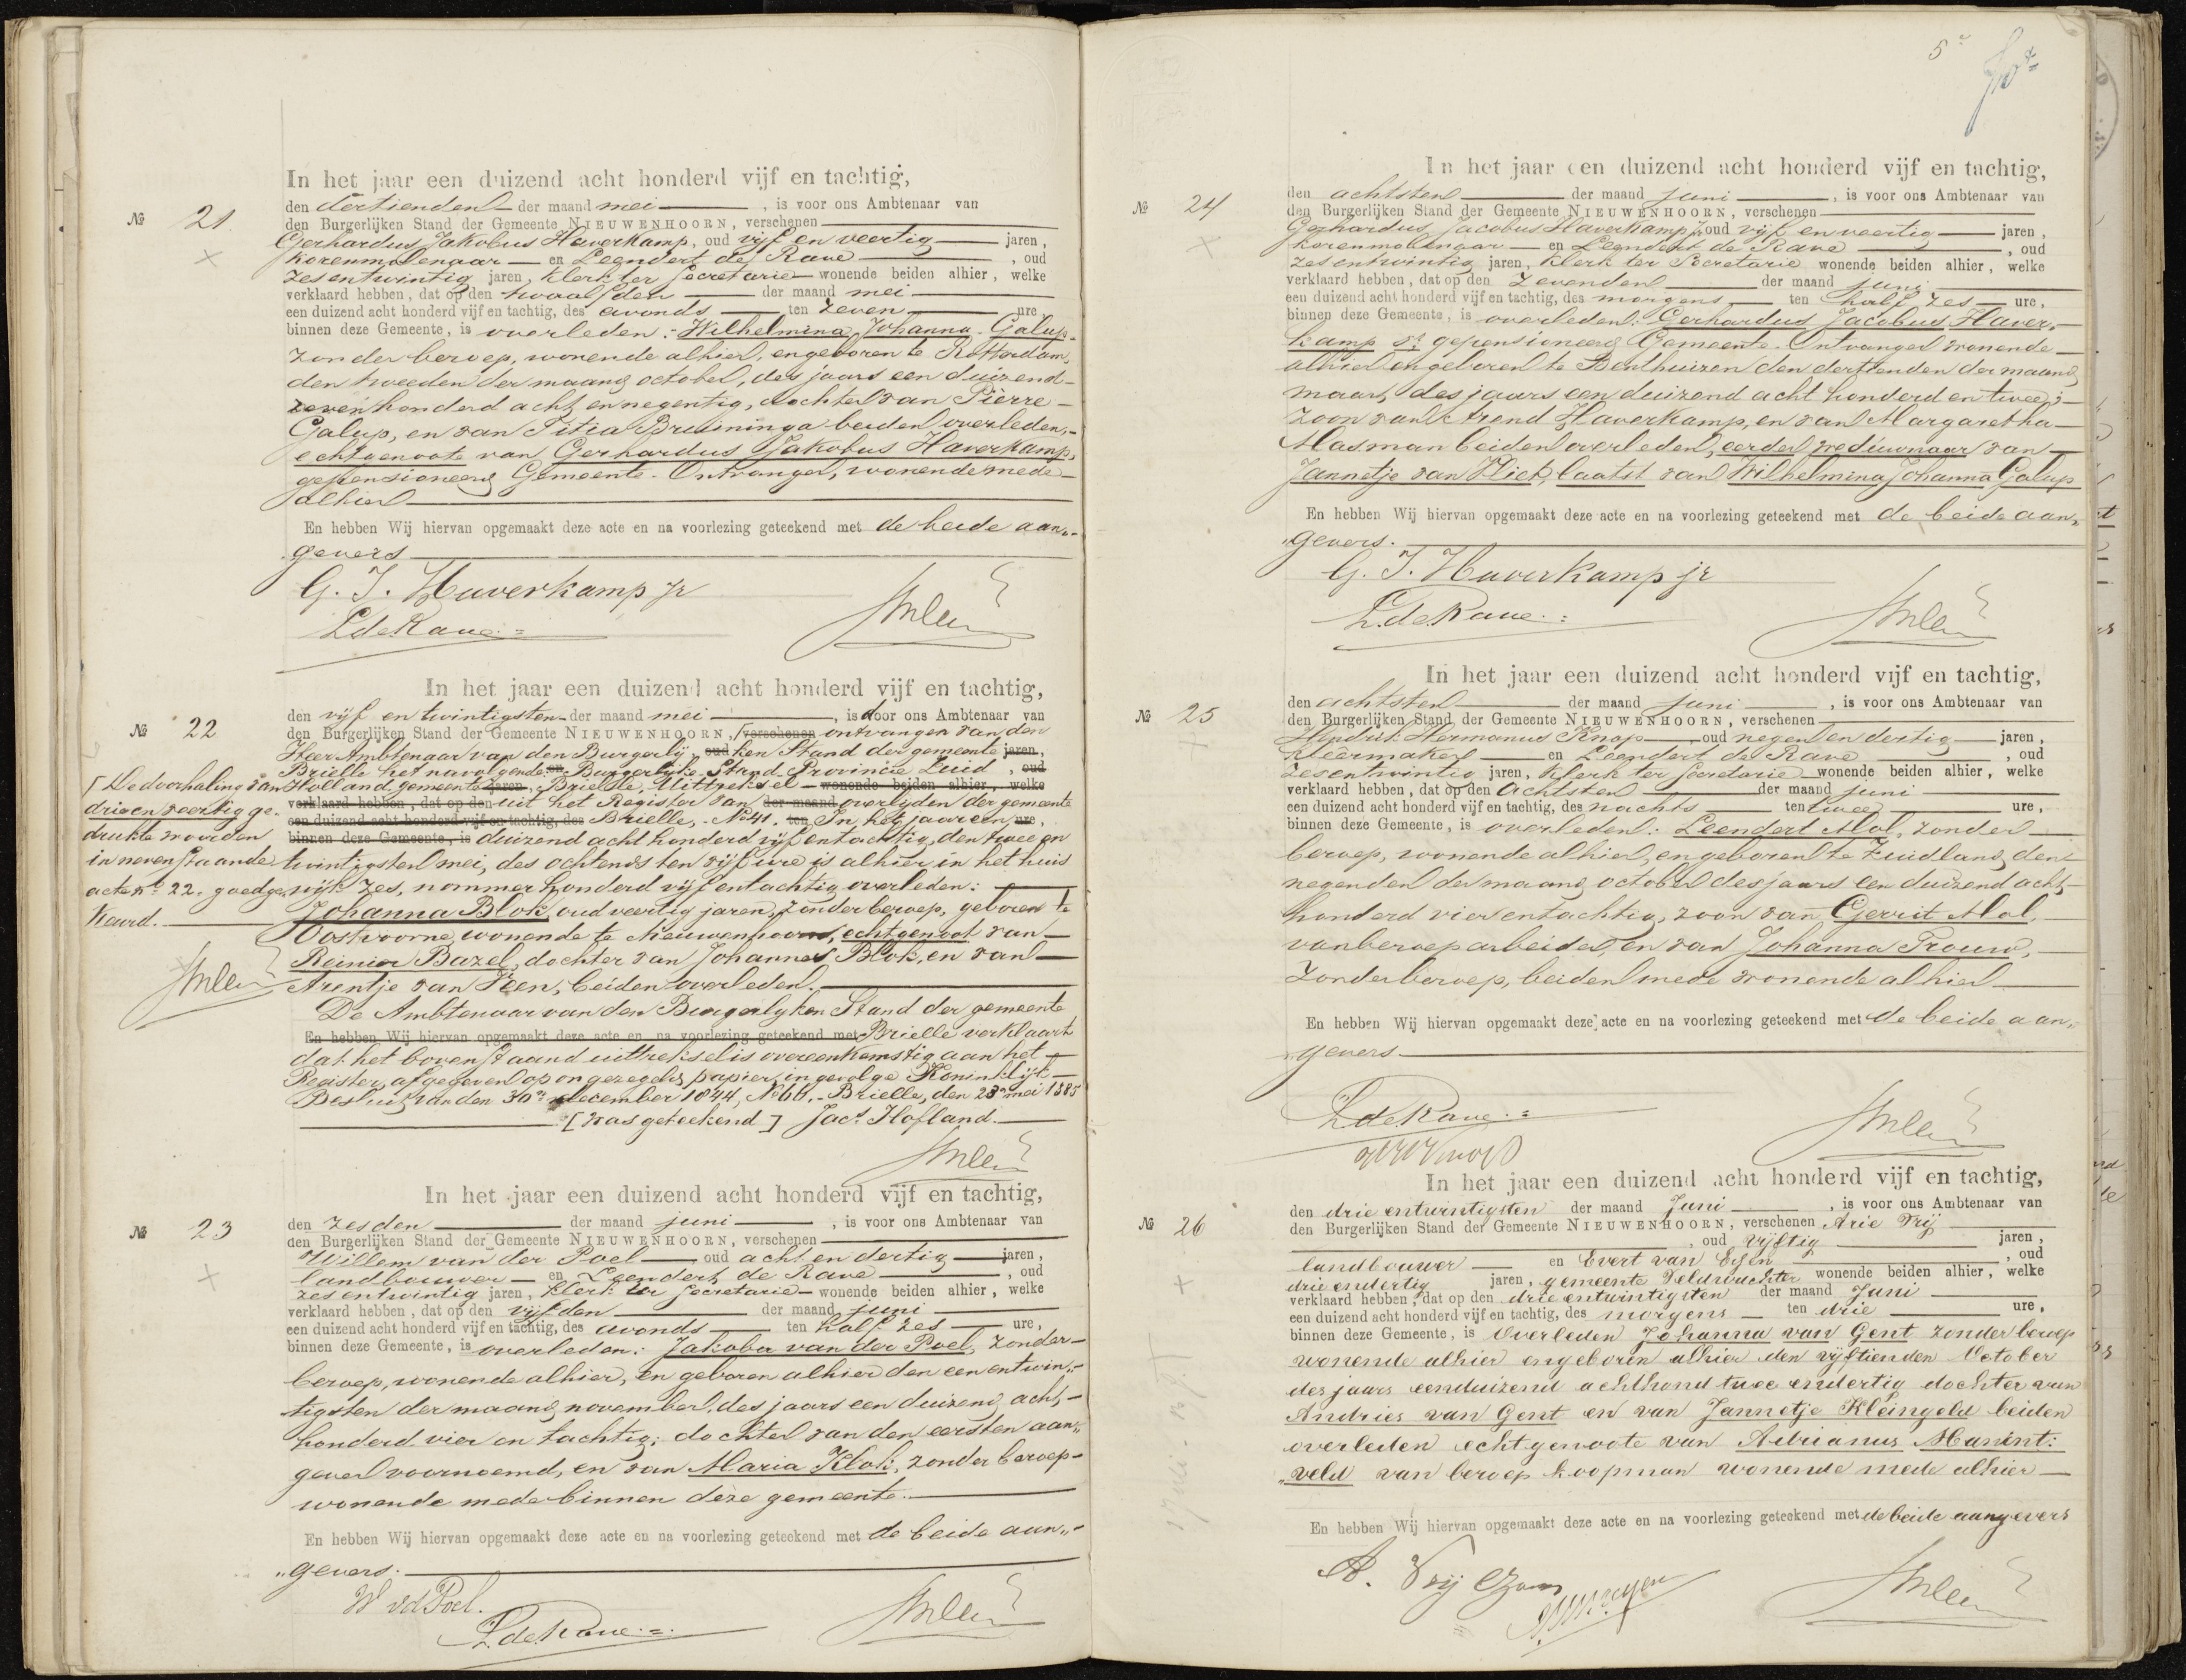 In het jaar een duizend acht honderd vijf en tachtig,
den dertienden der maand mei, is voor ons Ambtenaar van
№ 21.
den Burgerlijken Stand der Gemeente NIEUWENHOORN, verschenen
Gerhardus Jakobus Haverkamp, oud vijf en veertig jaren,
korenmolenaar en Leendert de Rave, oud
zesentwintig jaren, klerk ter Secretarie wonende beiden alhier, welke
verklaard hebben, dat op den twaalfden der maand mei
een duizend acht honderd vijf en tachtig, des avonds ten zeven ure
binnen deze Gemeente, is overleden: Wilhelmina Johanna Galup,
zonder beroep, wonende alhier, en geboren te Rotterdam,
den tweeden der maand october, des jaars een duizend
zevenhonderd acht en negentig, dochter van Pierre
Galup, en van Titia Bruininga beiden overleden,
echtgenoote van Gerhardus Jakobus Haverkamp,
gepensioneerd Gemeente-Ontvanger, wonende mede
alhier
En hebben Wij hiervan opgemaakt deze acte en na voorlezing geteekend met de beide aan„
gevers
G. J. Haverkamp jr
L de Rave
In het jaar een duizend acht honderd vijf en tachtig,
den vijf en twintigsten der maand mei, is door ons Ambtenaar van
№ 22
den Burgerlijken Stand der Gemeente NIEUWENHOORN, verschenen ontvangen van den
Heer Ambtenaar van den Burgerlij oud ken Stand der gemeente jaren,
Brielle het navolgende: en Burgerlijke Stand Provincie Zuid, oud
Holland, gemeente jaren, Brielle, Uittreksel wonende beiden alhier, welke
verklaard hebben, dat op den uit het Register van der maand overlijden der gemeente
een duizend acht honderd vijf en tachtig, des Brielle, No 41. ten In het jaar een ure,
binnen deze Gemeente, is duizend acht honderd vijf en tachtig, den twee en
twintigsten mei, des ochtends ten vijf ure is alhier in het huis
wijk zes, nommer honderd vijf entachtig overleden:
Johanna Blok, oud veertig jaren, zonder beroep, geboren te
Oostvoorne wonende te Nieuwenhoorn, echtgenoot van
Reinier Bazel, dochter van Johannes Blok, en van
Arentje van Veen, beiden overleden.
De Ambtenaar van den Burgerlyken Stand der gemeente
En hebben Wij hiervan opgemaakt deze acte en na voorlezing geteekend met Brielle verklaart
dat het bovenstaand uittreksel is overeenkomstig aan het
Register, afgegeven op ongezegeld papier, ingevolge Koninklijk
Besluit van den 30n december 1844, No 66. Brielle, den 23n mei 1885
[was geteekend] Jacs Hofland.
De doorhaling van
drie en veertig ge-
drukte woorden
in nevenstaande
acte no 22. goedge
keurd.
In het jaar een duizend acht honderd vijf en tachtig,
den zesden der maand juni, is voor ons Ambtenaar van
№ 23
den Burgerlijken Stand der Gemeente NIEUWENHOORN, verschenen
Willem van der Poel oud acht en dertig jaren,
landbouwer en Leendert de Rave, oud
zesentwintig jaren, klerk ter Secretarie wonende beiden alhier, welke
verklaard hebben, dat op den vijfden der maand juni
een duizend acht honderd vijf en tachtig, des avonds ten half zes ure,
binnen deze Gemeente, is overleden: Jakoba van der Poel, zonder
beroep, wonende alhier, en geboren alhier den een en twin„
tigsten der maand november, des jaars een duizend acht
honderd vier en tachtig; dochter van den eersten aan„
gever voornoemd, en van Maria Klok, zonder beroep
wonende mede binnen deze gemeente.
En hebben Wij hiervan opgemaakt deze acte en na voorlezing geteekend met de beide aan„
„gevers.
W vd Poel.
L. de Rave
5e
In het jaar een duizend acht honderd vijf en tachtig,
den achtsten der maand juni, is voor ons Ambtenaar van
№ 24
den Burgerlijken Stand der Gemeente NIEUWENHOORN, verschenen
Gerhardus Jacobus Haverkamp jr, oud vijf en veertig jaren,
korenmolenaar en Leendert de Rave, oud
zesentwintig jaren, klerk ter Secretarie wonende beiden alhier, welke
verklaard hebben, dat op den zevenden der maand juni
een duizend acht honderd vijf en tachtig, des morgens ten half zes ure,
binnen deze Gemeente, is overleden: Gerhardus Jacobus Haver„
kamp sr gepensioneerd Gemeente-Ontvanger wonende
alhier en geboren te Benthuizen den dertienden der maand
maart, des jaars een duizend acht honderd en twee;
zoon van Arend Haverkamp, en van Margaretha
Masman beiden overleden, eerder weduwnaar van
Jannetje van Vliet, laatst van Wilhelmina Johanna Galup
En hebben Wij hiervan opgemaakt deze acte en na voorlezing geteekend met de beide aan„
„gevers.
G. J. Haverkamp jr
L. de Rave
In het jaar een duizend acht honderd vijf en tachtig,
den achtsten der maand juni, is voor ons Ambtenaar van
№ 25
den Burgerlijken Stand der Gemeente NIEUWENHOORN, verschenen
Hendrik Hermanus Knop, oud negen en dertig jaren,
kleermaker en Leendert de Rave, oud
zesentwintig jaren, klerk ter Secretarie wonende beiden alhier, welke
verklaard hebben, dat op den achtsten der maand juni
een duizend acht honderd vijf en tachtig, des nachts ten twee ure,
binnen deze Gemeente, is overleden: Leendert Mol, zonder
beroep, wonende alhier, en geboren te Zuidland, den
negenden der maand october des jaars een duizend acht
honderd vier en tachtig, zoon van Gerrit Mol,
van beroep arbeider, en van Johanna Trouw,
zonder beroep, beiden mede wonende alhier
En hebben Wij hiervan opgemaakt deze acte en na voorlezing geteekend met de beide aan„
„gevers
L de Rave
In het jaar een duizend acht honderd vijf en tachtig,
den drie entwintigsten der maand Juni, is voor ons Ambtenaar van
№ 26
den Burgerlijken Stand der Gemeente NIEUWENHOORN, verschenen Arie Vrij
, oud vijftig jaren,
landbouwer en Evert van Essen, oud
drie endertig jaren, gemeente Veldwachter wonende beiden alhier, welke
verklaard hebben, dat op den drie entwintigsten der maand Juni
een duizend acht honderd vijf en tachtig, des morgens ten drie ure,
binnen deze Gemeente, is Overleden Johanna van Gent zonder beroep
wonende alhier en geboren alhier den vijftienden October
des jaars eenduizend achthond twee endertig dochter van
Andries van Gent en van Jannetje Kleingeld beiden
overleden echtgenoote van Adrianus Manint:
„veld van beroep koopman wonende mede alhier
En hebben Wij hiervan opgemaakt deze acte en na voorlezing geteekend met de beide aangevers
A. Vrij Czoon